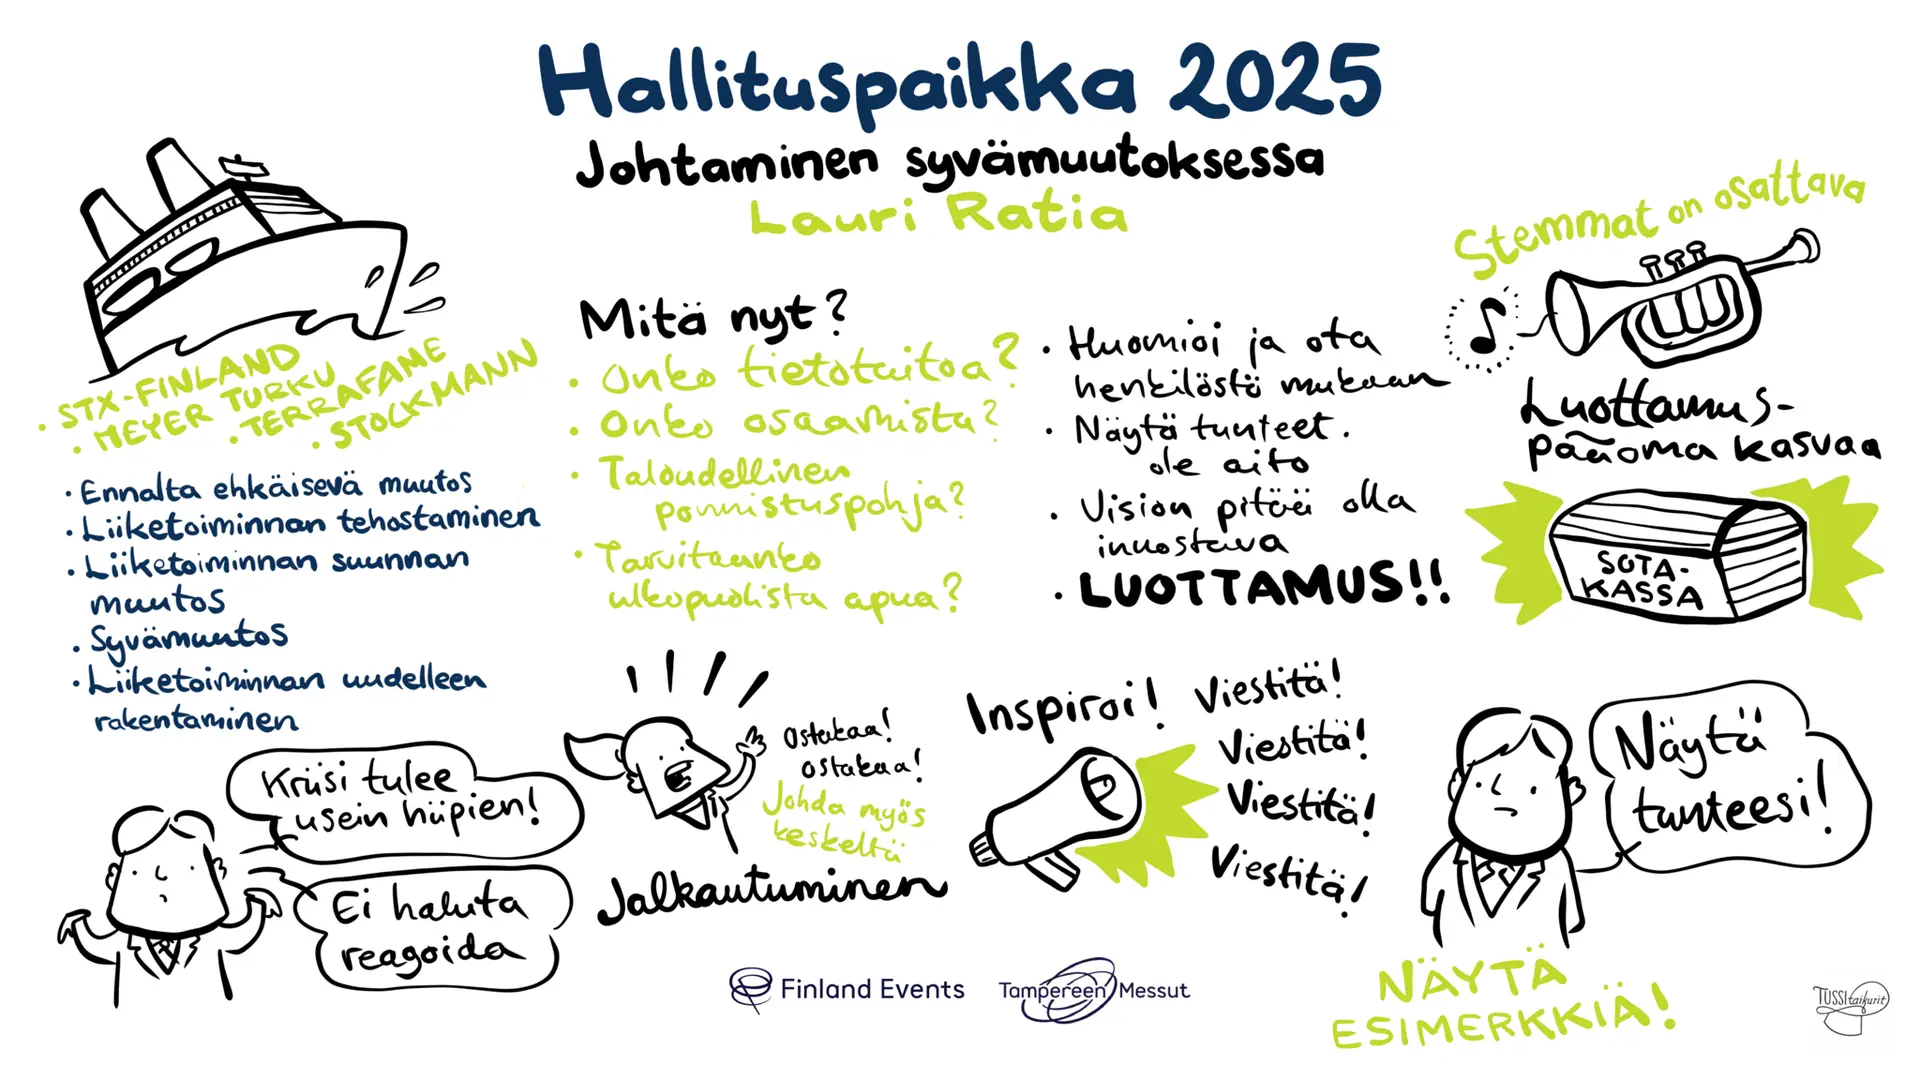 Hallituspaikka 2025
Johtaminen syvämuutoksessa
Lauri Ratia
• STX-FINLAND
• MEYER TURKU
• TERRAFAME
• STOCKMANN
• Ennalta ehkäisevä muutos
• Liiketoiminnan tehostaminen
• Liiketoiminnan suunnan
muutos
• Syvämuutos
• Liiketoiminnan uudelleen
rakentaminen
Mitä nyt?
• Onko tietotaitoa?
• Onko osaamista?
• Taloudellinen
ponnistuspohja?
• Tarvitaanko
ulkopuolista apua?
• Huomioi ja ota
henkilöstö mukaan
• Näytä tunteet.
ole aito
• Vision pitää olla
innostava
• LUOTTAMUS!!
Stemmat on osattava
Luottamus-
pääoma kasvaa
SOTA-
KASSA
Kriisi tulee
usein hiipien!
Ei haluta
reagoida
Ostakaa!
ostakaa!
Johda myös
keskeltä
Jalkautuminen
Inspiroi!
Viestitä!
Viestitä!
Viestitä!
Viestitä!
Näytä
tunteesi!
NÄYTÄ
ESIMERKKIÄ!
Finland Events
Tampereen Messut
TUSSItaikurit